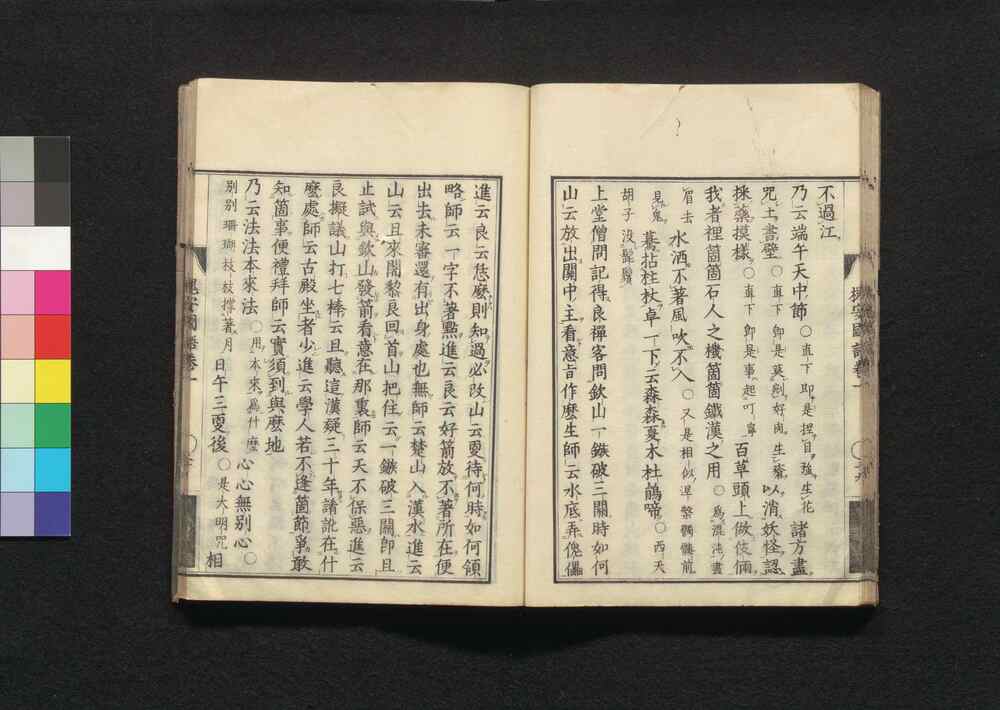 不過江
乃云端午天中節○直下即是捏目強生花諸方盡
咒土書壁○直下即是莫剜好肉生瘡以消妖怪認
採藥摸樣○直下即是事起叮寧百草頭上做伎倆
我者裡箇箇石人之機箇箇鐵漢之用○為混沌畫
眉去水洒不著風吹不入○又是相似涅槃髑髏前
見鬼驀拈柱杖卓一下云森森夏木杜鵑啼○西天
胡子沒髭鬚
上堂僧問記得良禪客問欽山一鏃破三關時如何
山云放出關中主看意旨作麼生師云水底弄傀儡
槐安國語卷一
進云良云恁麼則知過必改山云更待何時如何領
略師云一字不著點進云良云好箭放不著所在便
出去未審還有出身處也無師云楚山入漢水進云
山云且來闍黎良回首山把住云一鏃破三關即且
止試與欽山發箭看意在那裏師云天不保惡進云
良擬議山打七棒云且聽這漢疑三十年請訛在什
麼處師云古殿坐者少進云學人若不逢箇節爭敢
知箇事便禮拜師云實須到與麼地
乃云法法本來法○用本來為什麼心心無別心○
別別珊瑚枝枝撐著月日午三更後○是大明咒相
槐安國語卷一